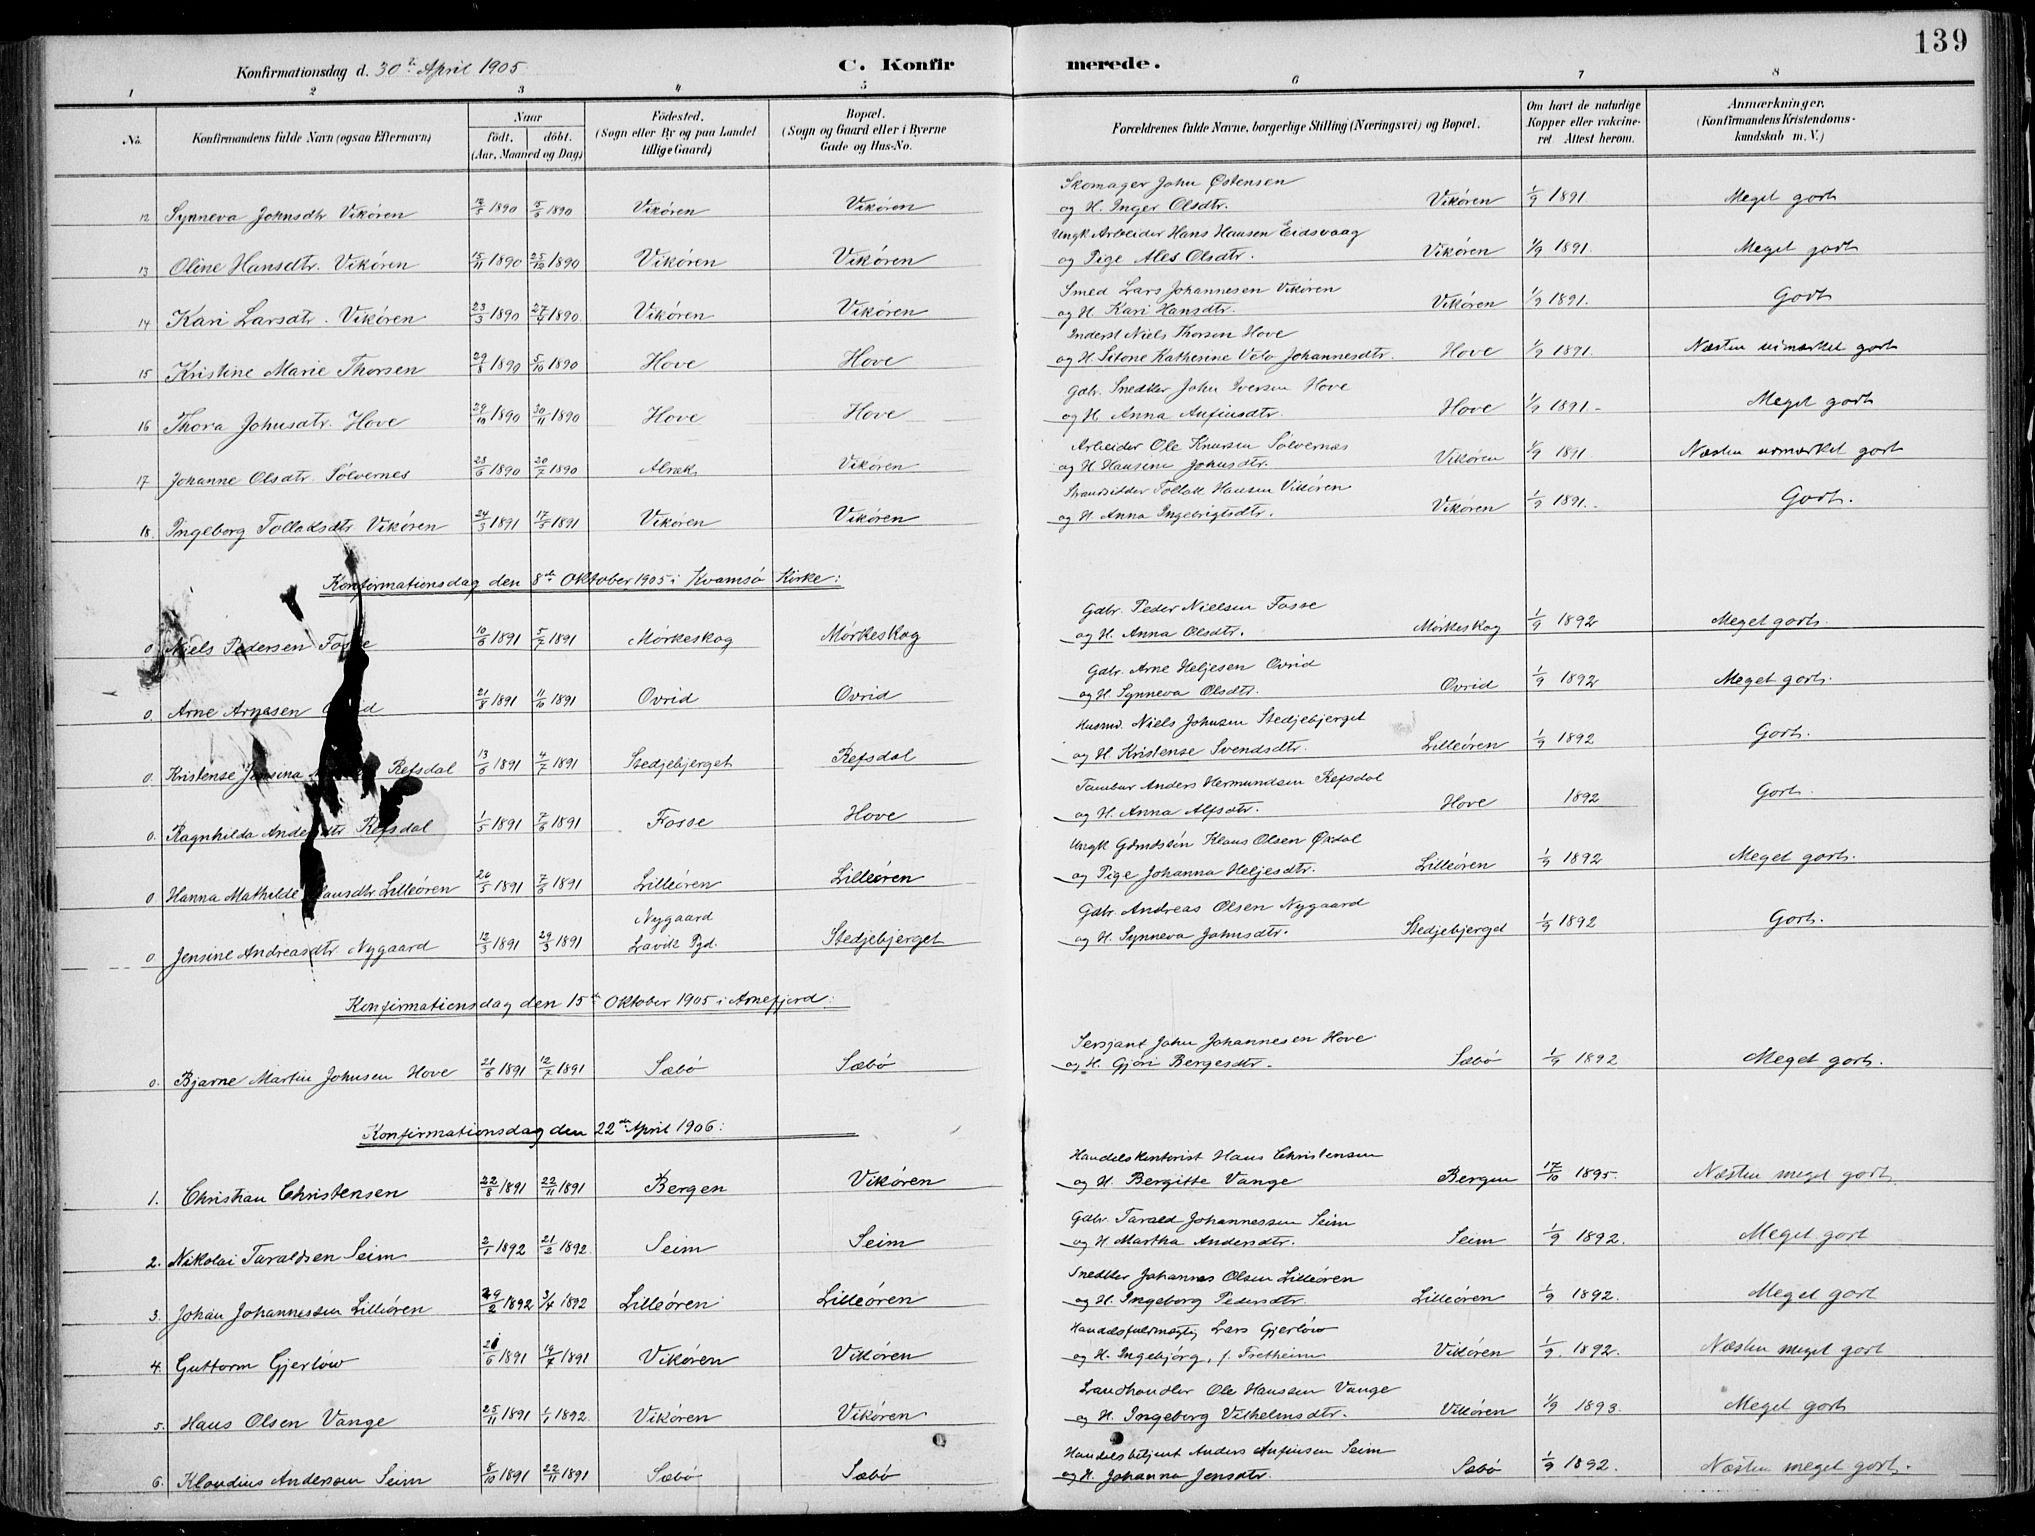 139
Konfirmationsdag d. 30te April 1905
C. Konfirmerede.
1 2 3 4 5 6 7 8
No.
Konfirmandens fulde Navn (ogsaa Efternavn)
Naar
født. døbt.
(Aar, Maaned og Dag)
Fødested.
(Sogn eller By og paa Landet
tillige Gaard)
Bopæl.
(Sogn og Gaard eller i Byerne
Gade og Hus-No.
Forældrenes fulde Navne, borgerlige Stilling (Næringsvei) og Bopæl.
Om havt de naturlige
Kopper eller vakcine-
ret. Attest herom.
Anmærkninger.
(Konfirmandens Kristendoms-
kundskab m. V.)
Skomager John Østensen
12 Synneva Johnsdtr. Vikøren 1890 1890 Vikøren Vikøren og H. Inger Olsdtr. Vikøren 1/9 1891 Meget godt
Ungk. Arbeider Hans Hansen Eidsvaag
13 Oline Hansdtr. Vikøren 1890 25/10 1890 Vikøren Vikøren og Pige Ales Olsdtr. Vikøren 1/9 1891. Meget godt
Smed Lars Johannesen Vikøren
14 Kari Larsdtr. Vikøren 23/3 1890 27/4 1890. Vikøren Vikøren og H. Kari Hansdtr. Vikøren 1/9 1891. Godt
Inderst Niels Thorsen Hove
15 Kristine Marie Thorsen 29/8 1890 5/10 1890 Hove Hove og H. Katherine Johannesdtr. Hove 1/9 1891. Næsten udmærket godt
Gdbr. Snedker John Iversen Hove
16 Thora Johnsdtr. Hove 29/10 1890 30/11 1890 Hove Hove og H. Anna Anfinsdtr. Hove 1/9 1891. Meget godt
Arbeider Ole Knutsen Solvernæs
17 Johanne Olsdtr. Sølvernes 23/6 1890 20/7 1890 Abræk Vikøren og H. Hansine Johnsdtr. Vikøren 1/9 1891 Næsten udmærket godt
Strandsidder Tollak Hansen Vikøren
18. Ingeborg Tollaksdtr. Vikøren 24/3 1891 17/5 1891 Vikøren Vikøren og H. Anna Ingebrigtsdtr. Vikøren 1/9 1891. Godt.
Konfirmationsdag den 8de Oktober 1905 i Kvamsø Kirke:
Gdbr. Peder Nielsen Fosse
0 Niels Pedersen Fosse 10/6 1891 5/7 1891 Mørkeskog Mørkeskog og H. Anna Olsdtr. Mørkeskog 1/9 1892 Meget godt.
Gdbr. Arne Heljesen Ovrid
0. Arne Arnesen Ovrid 21/8 1891 11/10 1891 Ovrid Ovrid og H. Synneva Olsdtr. Ovrid 1/9 1892 Meget godt.
Husmd. Niels Johnsen Stedjebjerget
0. Kristense Jensina Refsdal 13/6 1891 4/7 1891 Stedjebjerget Refsdal og H. Kristense Svendsdtr. Lilleøren 1/9 1892 Godt.
Tambur Anders Hermundsen Refsdal
0. Ragnhilda Andersdtr. Refsdal 1/5 1891 7/6 1891 Fosse Hove og H. Anna Alfsdtr. Hove 1892 Godt.
Ungk Gdmdssøn Klaus Olsen Øxdal
0 Hanna Mathilde Klausdtr. Lilleøren 26/5 1891 7/6 1891 Lilleøren Lilleøren og Pige Johanna Heljesdtr. Lilleøren 1/9 1892 Meget godt.
Gdbr. Andreas Olsen Nygaard
0 Jensine Andreasdtr. Nygaard 12/3 1891 29/3 1891 Nygaard Lavik Pgd. Stedjebjerget og H. Synneva Johnsdtr. Stedjebjerget 1/9 1892 Godt.
Konfirmationsdag den 15de Oktober 1905 i Arnefjord:
Sersjant John Johannesen Hove
0. Bjarne Martin Johnsen Hove 21/6 1891 12/7 1891 Sæbø Sæbø og H. Gjøri Bergesdtr. Sæbø 1/9 1892 Meget godt.
Konfirmationsdag den 22de April 1906:
Handelskontorist Hans Christensen
1. Christian Christensen 22/8 1891 22/11 1891 Bergen Vikøren og H. Bergitte Vange Bergen 17/10 1895. Næsten meget godt.
Gdbr. Tarald Johannessen Seim
2. Nikolai Taraldsen Seim 2/1 1892 21/2 1892. Seim Seim og H. Martha Andersdtr. Seim 1/9 1892. Meget godt
Snedker Johannes Olsen Lilleøren
3. Johan Johannessen Lilleøren 29/2 1892 3/4 1892 Lilleøren Lilleøren og H. Ingeborg Pedersdtr. Lilleøren 1/9 1892. Meget godt
Handelsfuldmægtig Lars Gjerløw
4. Guttorm Gjerløw 1891 19/7 1891 Vikøren Vikøren og H. Ingebjørg, f. Fretheim Vikøren 1/9 1892. Næsten meget godt
Landhandler Ole Hanssen Vange
5. Hans Olsen Vange 25/11 1891 1/1 1892. Vikøren Vikøren og H. Ingeborg Vilhelmsdtr. Vikøren 1/9 1893. Meget godt
Handelsbetjent Anders Anfinsen Seim
6. Klaudius Andersen Seim 8/10 1891 22/11 1891 Sæbø Sæbø og H. Johanna Jensdtr. Sæbø 1/9 1892. Næsten meget godt.